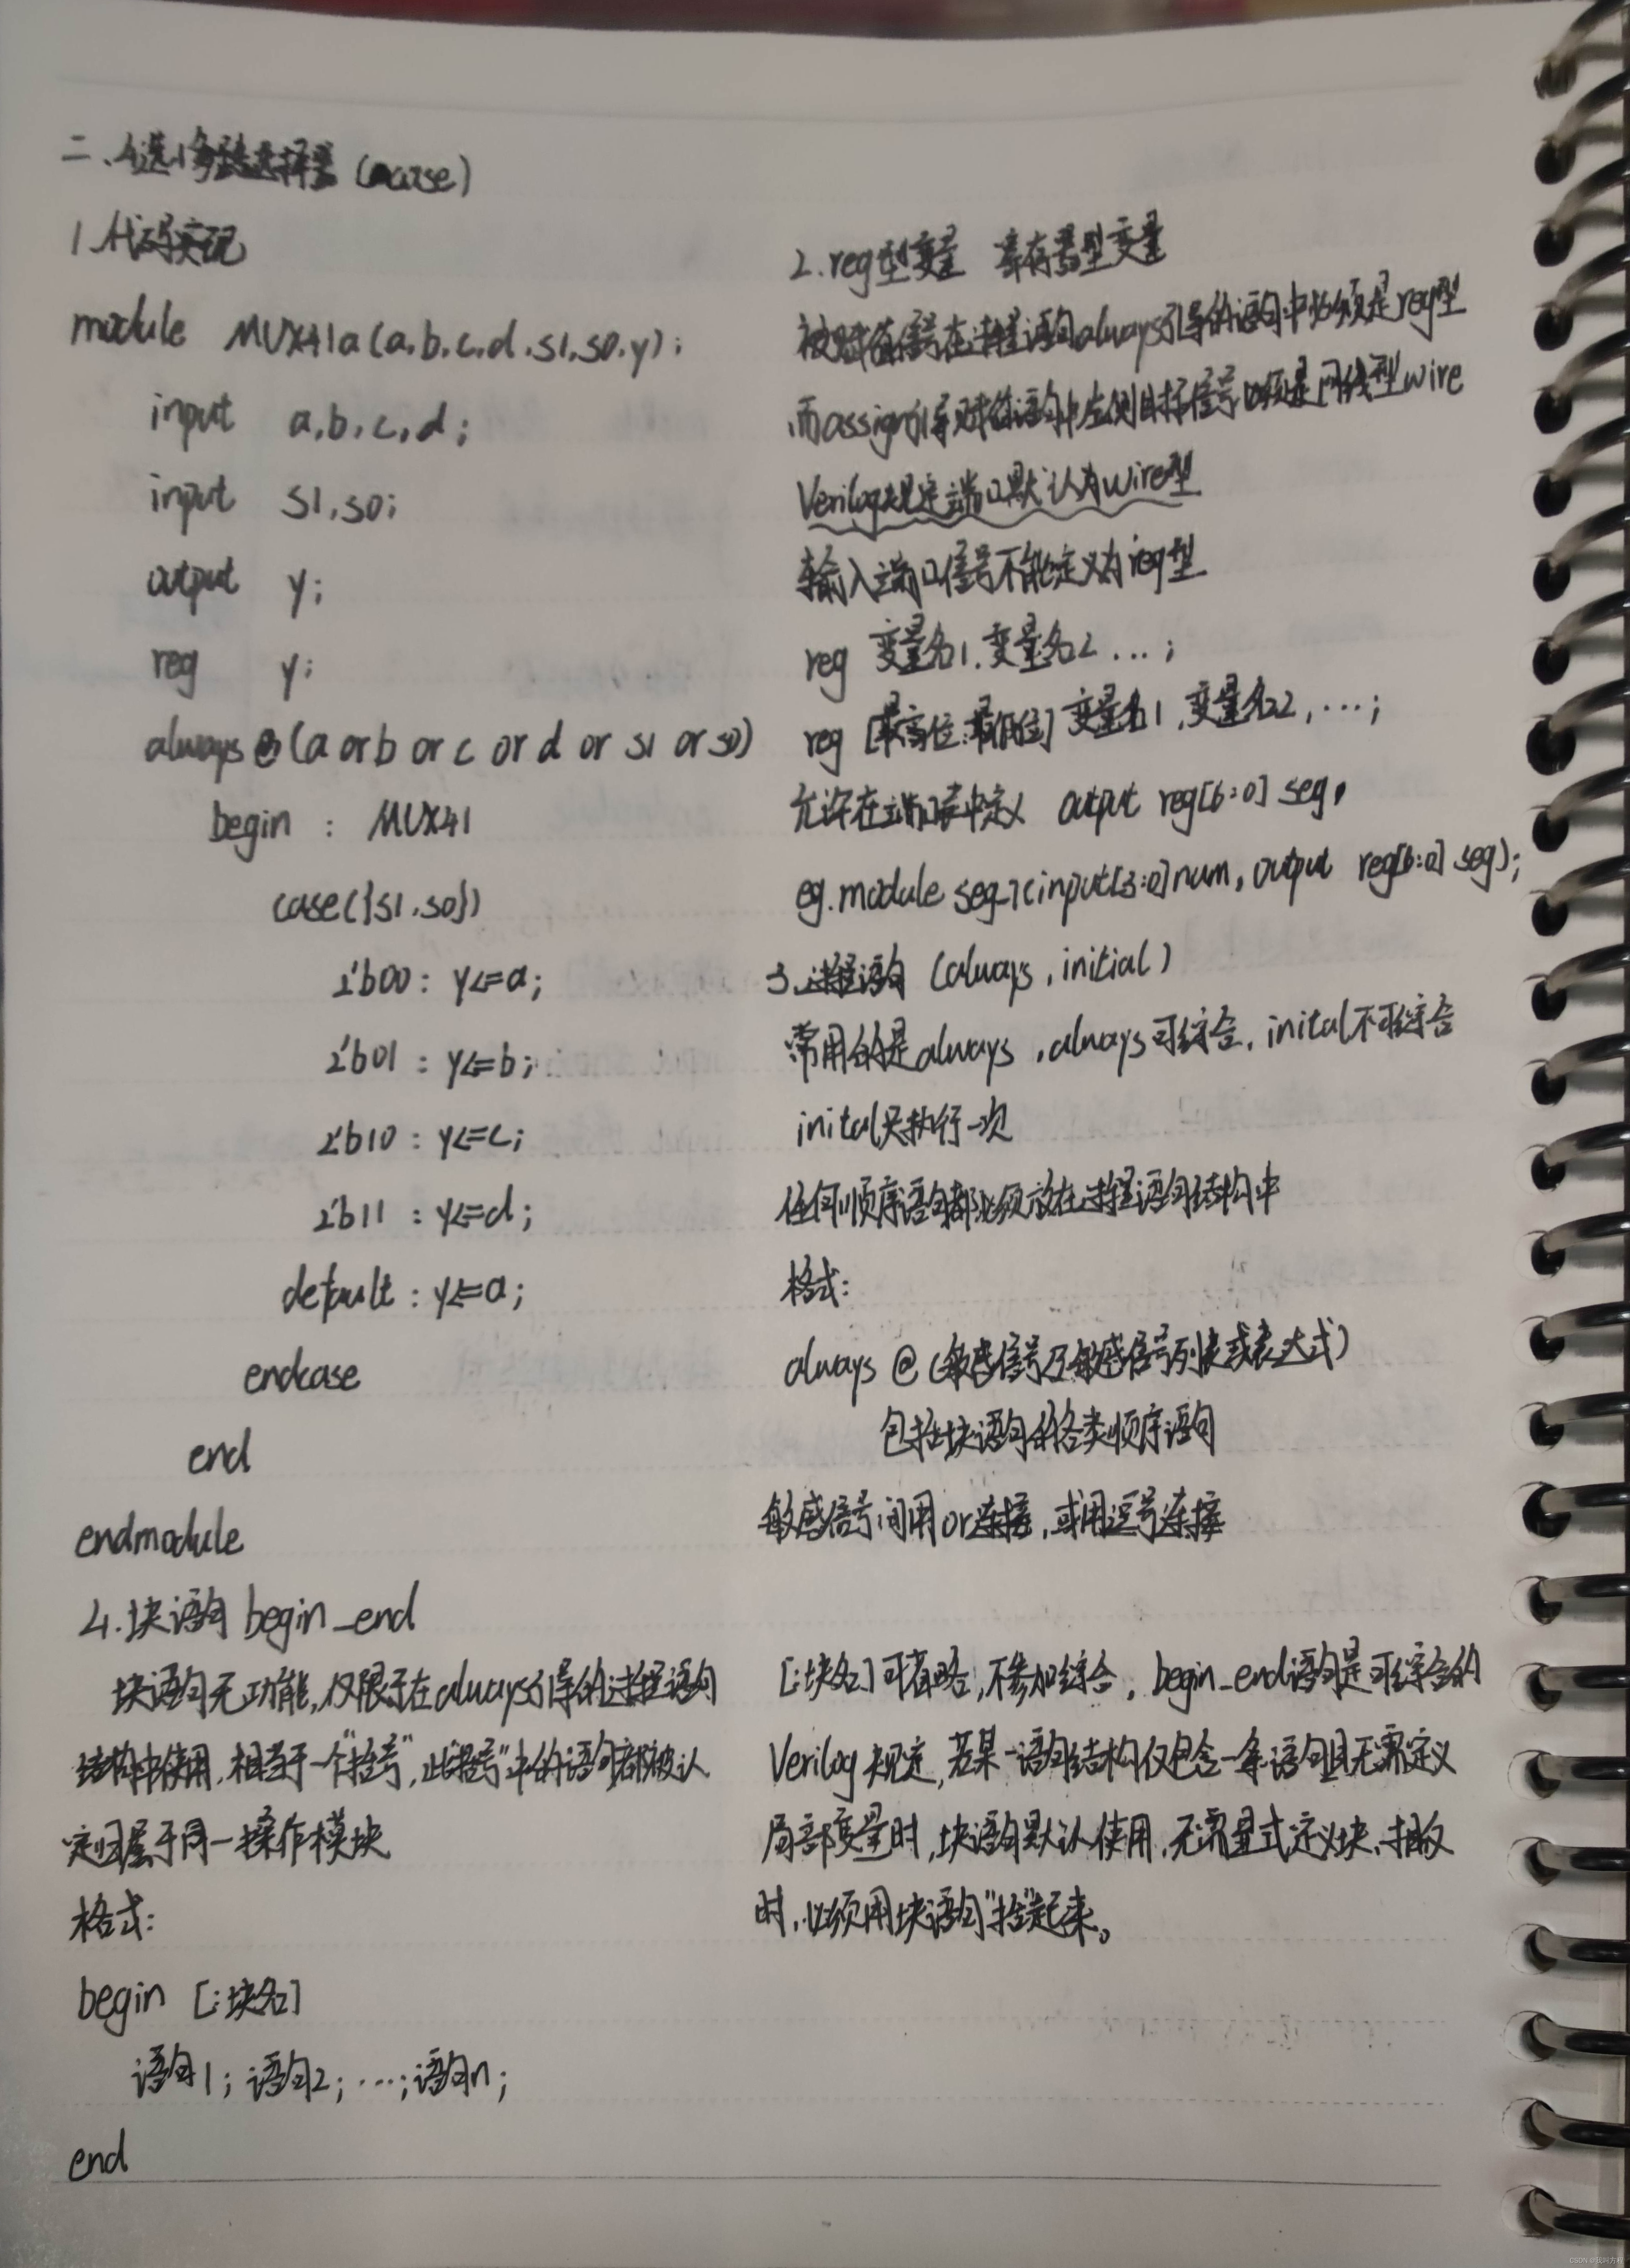 二、4选1多路选择器 (case)
1.代码实现
module MUX41a(a,b,c,d,s1,s0,y);
input a,b,c,d;
input s1,s0;
output y;
reg y;
always@(a or b or c or d or s1 or s0)
begin : MUX41
case({s1,s0})
2'b00: y<=a;
2'b01: y<=b;
2'b10: y<=c;
2'b11: y<=d;
default: y<=a;
endcase
end
endmodule
2.reg型变量 寄存器型变量
被赋值信号在过程语句always引导的语句中必须是reg型
而assign引导赋值语句中左侧目标信号必须是网线型wire
Verilog规定端口默认为wire型
输入端口信号不能定义为reg型
reg 变量名1,变量名2 ...;
reg [最高位:最低位] 变量名1,变量名2,...;
允许在端口表中定义 output reg[6:0] seg,
eg.module seg_7(input[3:0]num,output reg[6:0] seg);
3.过程语句 (always,initial)
常用的是always,always可综合,inital不可综合
inital只执行一次
任何顺序语句都必须放在过程语句结构中
格式:
always @ (敏感信号及敏感信号列表或表达式)
包括块语句的各类顺序语句
敏感信号间用or连接,或用逗号连接
4.块语句 begin_end
块语句无功能,仅限于在always引导的过程语句
结构中使用,相当于一个"括号",此"括号"中的语句都被认
定归属于同一操作模块
格式:
begin [:块名]
语句1;语句2;...;语句n;
end
[:块名]可省略,不参加综合,begin_end语句是可综合的
Verilog规定,若某一语句结构仅包含一条语句且无需定义
局部变量时,块语句默认使用,无需显式定义块,相反
时,必须用块语句"括"起来。
CSDN @我叫方程